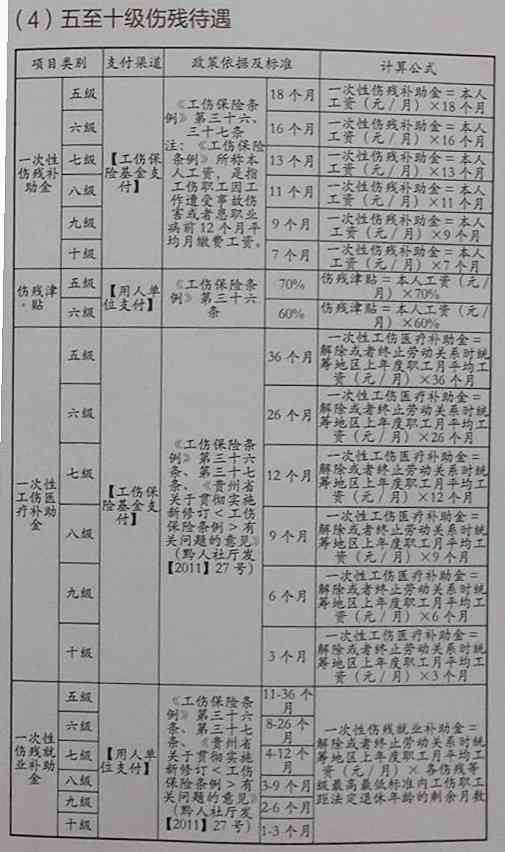 （4）五至十级伤残待遇
项目类别 支付渠道 政策依据及标准 计算公式
一次性
伤残补
助金
【工伤保
险基金支
付】
《工伤保险条
例》第三十六、
三十七条
注：《工伤保险
条例》所称本
人工资，是指
工伤职工因工
作遭受事故伤
害或者患职业
病前12个月平
均月缴费工资。
五级 18个月 一次性伤残补助金＝本人
工资（元／月）×18个月
六级 16个月 一次性伤残补助金＝本人
工资（元／月）×16个月
七级 13个月 一次性伤残补助金＝本人
工资（元／月）×13个月
八级 11个月 一次性伤残补助金＝本人
工资（元／月）×11个月
九级 9个月 一次性伤残补助金＝本人
工资（元／月）×9个月
十级 7个月 一次性伤残补助金＝本人
工资（元／月）×7个月
伤残津
贴
【用人单
位支付】
《工伤保险条
例》第三十六
条
五级 70% 伤残津贴＝本人工资（元／
月）×70%
六级 60% 伤残津贴＝本人工资（元／
月）×60%
一次性
工伤医
疗补助
金
【工伤保
险基金支
付】
《工伤保险条
例》第三十六
条、第三十七
条、《贵州省
关于贯彻实施
新修订<工伤
保险条例>有
关问题的意见》
（黔人社厅发
【2011】27号）
五级 36个月 一次性工伤医疗补助金＝
解除或者终止劳动关系时统
筹地区上年度职工月平均工
资（元／月）×36个月
六级 26个月 一次性工伤医疗补助金＝
解除或者终止劳动关系时统
筹地区上年度职工月平均工
资（元／月）×26个月
七级 12个月 一次性工伤医疗补助金＝
解除或者终止劳动关系时统
筹地区上年度职工月平均工
资（元／月）×12个月
八级 9个月 一次性工伤医疗补助金＝
解除或者终止劳动关系时统
筹地区上年度职工月平均工
资（元／月）×9个月
九级 6个月 一次性工伤医疗补助金＝
解除或者终止劳动关系时统
筹地区上年度职工月平均工
资（元／月）×6个月
十级 3个月 一次性工伤医疗补助金＝
解除或者终止劳动关系时统
筹地区上年度职工月平均工
资（元／月）×3个月
一次性
伤残就
业补助
金
【用人单
位支付】
《工伤保险条
例》第三十六
条、第三十七
条、《贵州省
关于贯彻实施
新修订<工伤
保险条例>有
关问题的意见》
（黔人社厅发
【2011】27号）
五级 11-36个
月
六级 8-26个
月
七级 4-12个
月
八级 3-9个月
九级 2-6个月
十级 1-3个月
一次性伤残就业补助金＝
解除或者终止劳动关系时统
筹地区上年度职工月平均工
资（元／月）×各伤残等
级最高最低标准内工伤职工
距法定退休年龄的剩余月数